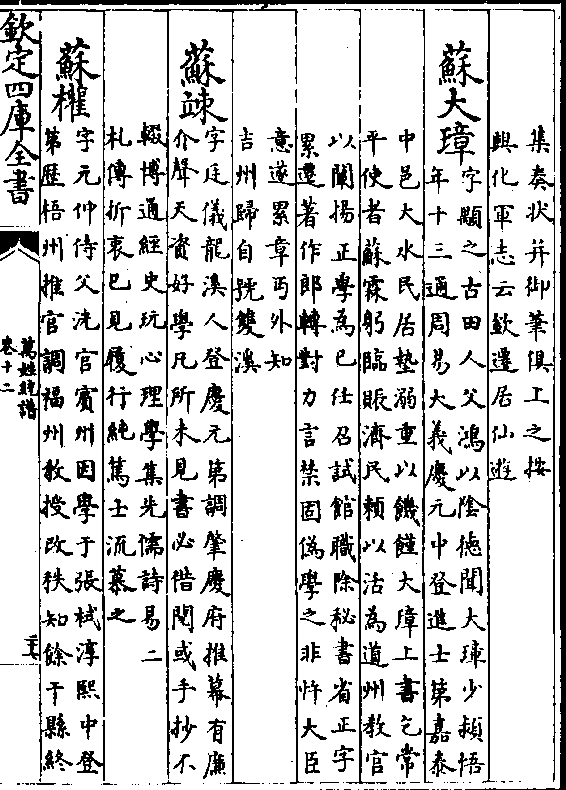 集奏狀并御筆俱上之按
興化軍志云欽邊居仙遊
蘇大璋
字顯之古田人父鴻以陰德聞大璋少頴悟
年十三通周易大義慶元中登進士第嘉泰
中邑大水民居墊溺重以饑饉大璋上書乞常
平使者蘇霖躬臨賑濟民賴以活為道州教官
以闡揚正學為己仕召試館職除秘書省正字
累遷著作郎轉對力言禁固偽學之非忤大臣
意遂累章丐外知
吉州歸自號雙溪
蘇竦
字廷儀龍溪人登慶元第調肇慶府推幕有廉
介聲天資好學凡所未見書必借閱或手抄不
輟博通經史玩心理學集先儒詩易二
札傳折衷已見履行純篤士流慕之
蘇權
字元仲侍父洸官賓州因學于張栻淳熙中登
第歷梧州推官調福州教授改秩知餘干縣終
欽定四庫全書
萬姓統譜
卷十二